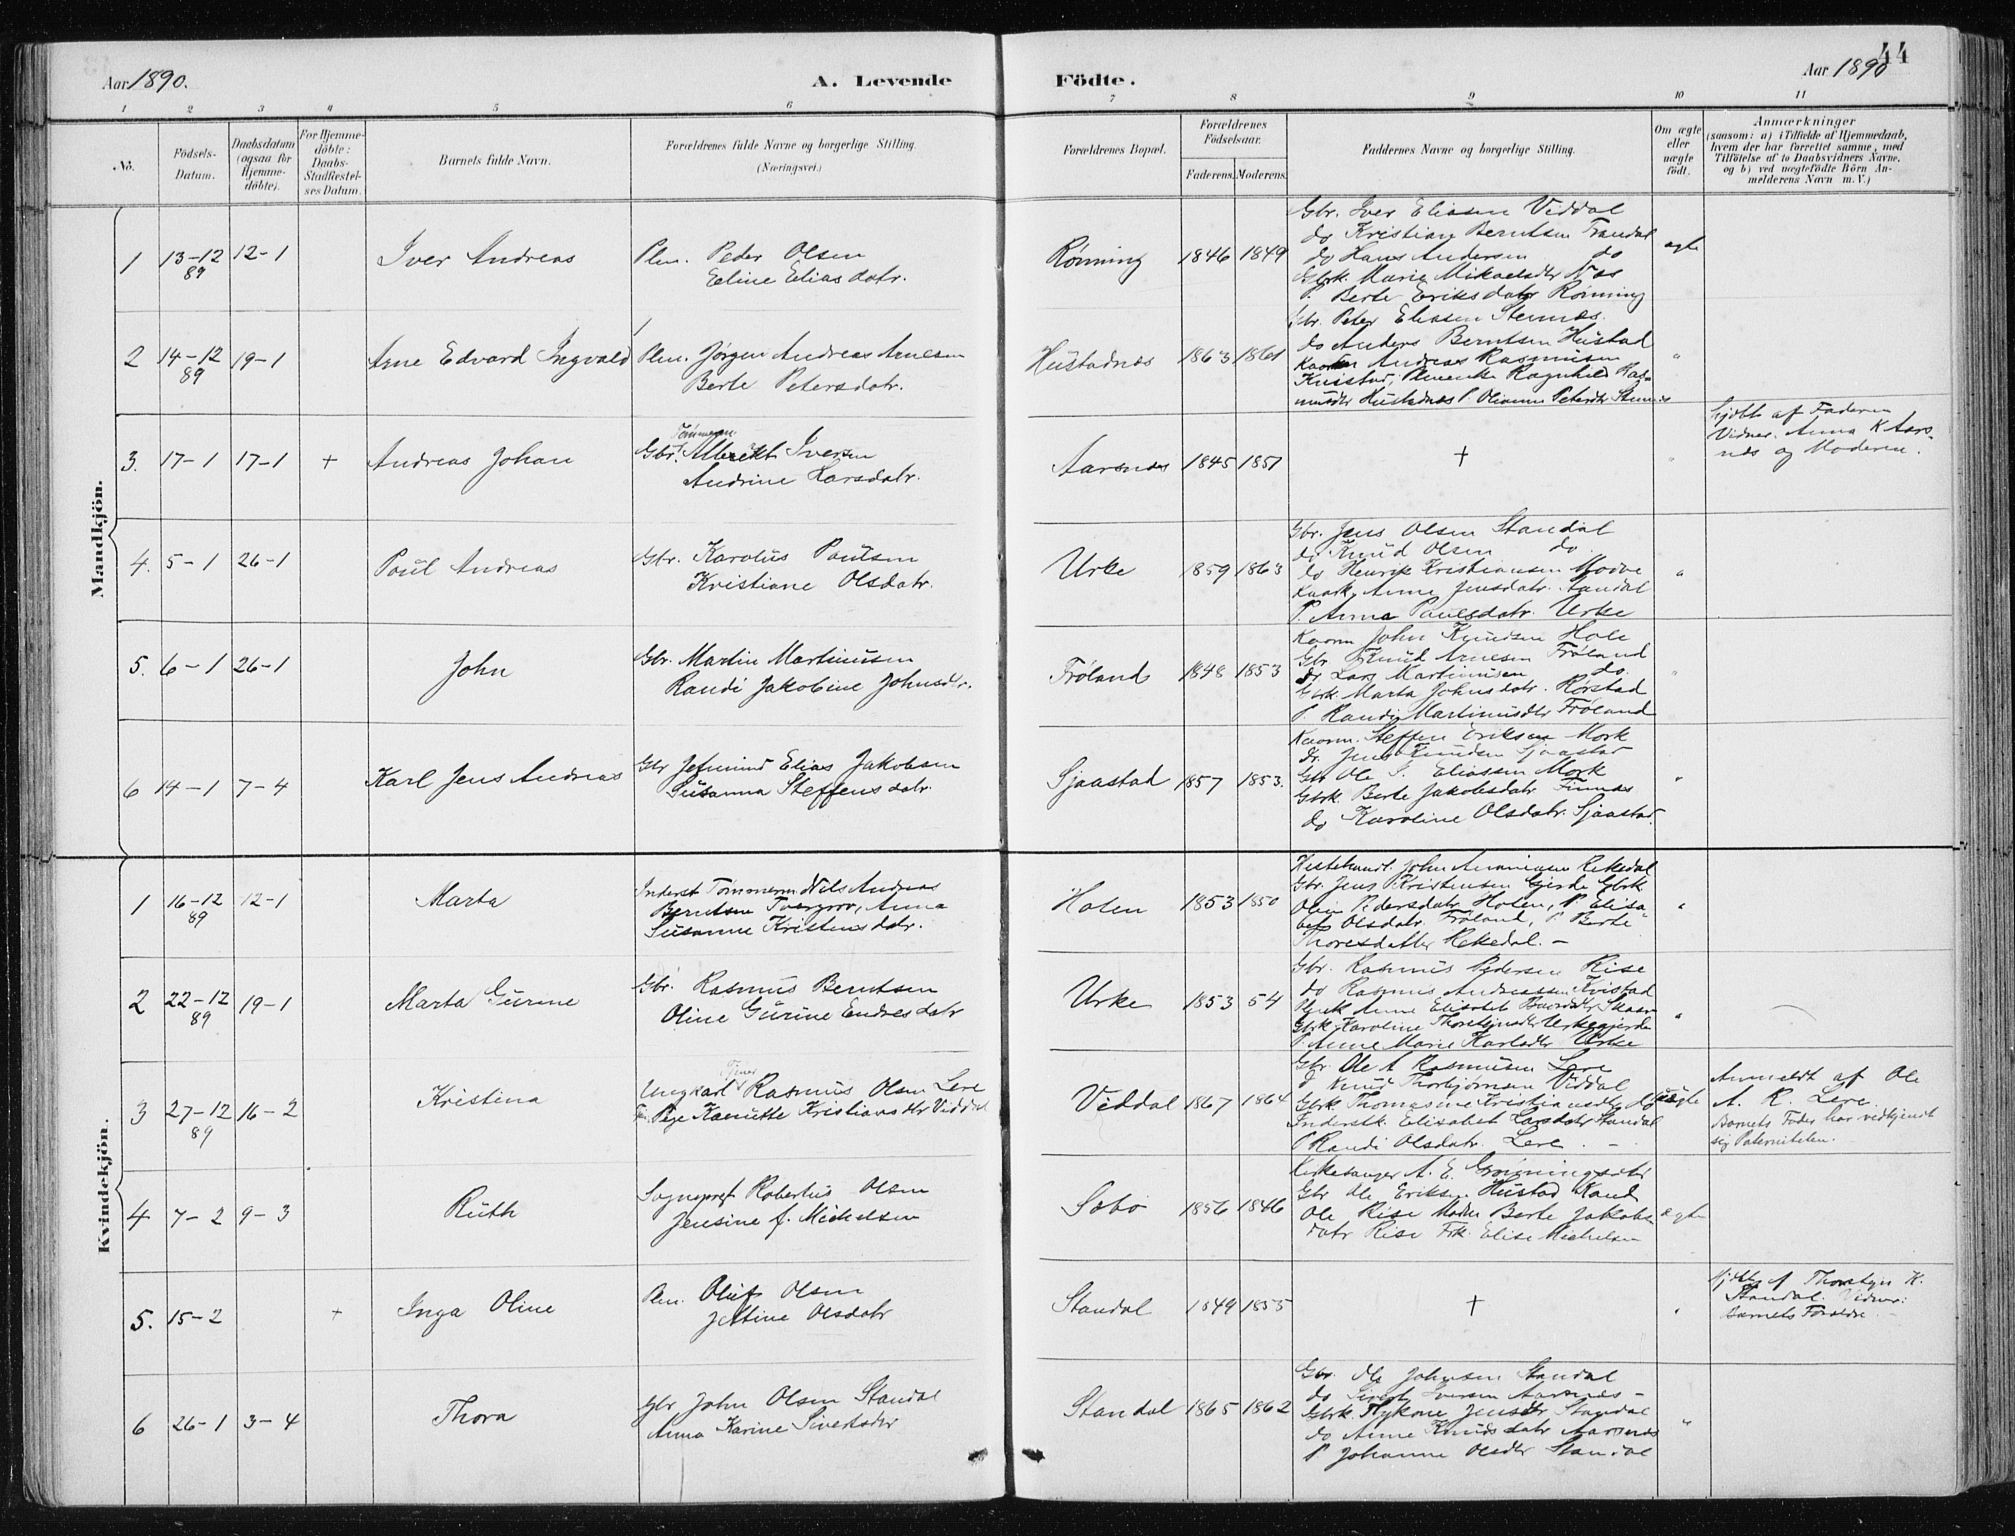 Aar 1890.
A. Levende Födte.
Aar 1890
44
1 2 3 4 5 6 7 8 9 10 11
No.
Födsels-Datum.
Daabsdatum (ogsaa for Hjemmedöbte).
For Hjemmedöbte: Daabs-Stadfæstelses Datum.
Barnets fulde Navn.
Forældrenes fulde Navne og borgerlige Stilling.
(Næringsvei.)
Forældrenes Bopæl.
Forældrenes Födselsaar.
Faderens. Moderens.
Faddernes Navne og borgerlige Stilling.
Om ægte eller uægte födt.
Anmærkninger
(saasom: a) i Tilfælde af Hjemmedaab,
hvem der har forrettet samme, med
Tilföielse af to Daabsvidners Navne,
og b) ved uægtefödte Börn Anmelderens Navn m. V.)
Mandkjön.
1 13-12 89 12-1 Iver Andreas
Plm. Peder Olsen
Eline Eliasdatr.
Rönning 1846 1849
Gbr. Iver Eliasen Viddal
do Kristian Berntsen Trandal
do Hans Andersen do
Gbrk. Marie Mikaelsdtr Nes
P. Berte Eriksdatr Rönning
ægte
2 14-12 89 19-1 Arne Edvard Ingvald
Plm. Jörgen Andreas Arnesen
Berte Petersdatr.
Hustadnæs 1863
Gbr. Peter Eliasen Stennes.
do Anders Berntsen Hustad
Andreas Rasmusen
Ragnhild Ras-
musdtr Hustadnæs P. Olianne Petersdtr
"
3. 17-1 17-1 + Andreas Johan
Tömmerm.
Gbr. Albrekt Iversen
Andrine Larsdatr.
Aarsnæs 1845 1851
+
"
hjdbt af Faderen
Vidner. Anna K Aars-
næs og Moderen.
4. 5-1 26-1 Poul Andreas
Gbr. Karolus Paulsen
Kristiane Olsdatr.
Urke 1859 1863
Gbr. Jens Olsen Standal
do Knud Olsen do.
do Henrik Kristiansen
Anne Jensdatr. Standal
P. Anna Paulsdatr. Urke
"
5. 6-1 26-1 John
Gbr. Martin Martinusen
Randi Jakobine Johnsdtr.
Fröland 1848 1853
Kaarm John Knudsen Hole
Gbr Knud Arnesen Fröland
do Lars Martinusen do.
Gbrk. Marta Johnsdatr. Rörstad
P. Randi Martinusdtr Fröland
"
6 14-1 7-4 Karl Jens Andreas
Gbr Jetmund Elias Jakobsen
Susanna Steffensdatr.
Sjaastad 1857 1853.
Kaarm. Steffen Eriksen Mork
Gr. Jens Knudsen Sjaastad
Gbr Ole S. Eliassen Mork
Gbrk. Berte Jakobsdatr Finnæs
do Karoline Olsdatr. Sjaastad.
"
Kvindekjön.
1 16-12 89 12-1 Marta
Inderst Tömmerm Nils Andreas
Berntsen Tvergrov, Anna
Susanne Kristensdatr.
Holen 1853 1850
Hestehandl. John Rekedal
Gbr. Jens Kristensen Gjerde Gbrk
Olin Pedersdatr. Holen, P. Elisa
bet Olsdatr. Fröland, P. Berte
Thoresdatter Rekedal. -
"
2 22-12 89 19-1 Marta Gurine
Gbr. Rasmus Berntsen
Oline Gurine Endresdatr
Urke 1853 54
Gbr. Rasmus Pedersen Rise
do Rasmus Andreassen Kvistad
Anne Elisabet Skaar
Gbrk. Karoline Urkegjerde
P. Anne Marie Karlsdtr Urke
"
3 27-12 89 16-2 Kristina
Tjener
Ungkarl Rasmus Olsen Lere
Pige Kanutte Kristiansdtr Viddal
Viddal 1867 1864
Gbr. Ole A Rasmusen Lere
do Knud Thorbjörnsen Viddal
Gbrk. Thomasine Kristiansdtr do
Inderstk. Elisabet Larsdatr Standal
P Randi Olsdatr. Lere. -
uægte
Anmeldt af Ole
A. R. Lere.
Barnets Fader har vedkjendt
sig Paterniteten.
4 7-2 9-3 Ruth
Sogneprest Robertus Olsen
Jensine f. Michelsen
Sæbö 1856 1846
Kirkesanger A. E. Grönningsæter
Gbr Ole Eriksen Hustad Kand
Ole Rise Berte Jakobs
datr Rise Frk. Elise Michelsen
ægte
5. 15-2 + Inga Oline
Plm. Oluf Olsen
Jettine Olsdatr
Standal 1849 1855
+
"
hjdbt af Thorstein K.
Standal. Vidner:
Barnets Forældre. -
6 26-1 3-4 Thora
Gbr John Olsen Standal
Anna Karine Sivertsdtr
Standal 1865 1862
Gbr. Ole Johnsen Standal
do Sivert Iversen Aarsnæs -
Gbrk. Jensdtr Standal
do Anne Knudsdatr Aarsnæs
P Johanne Olsdtr Standal
"